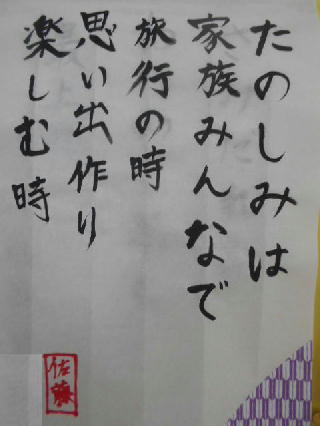 たのしみは
家族みんなで
旅行の時
思い出作り
楽しむ時
佐藤